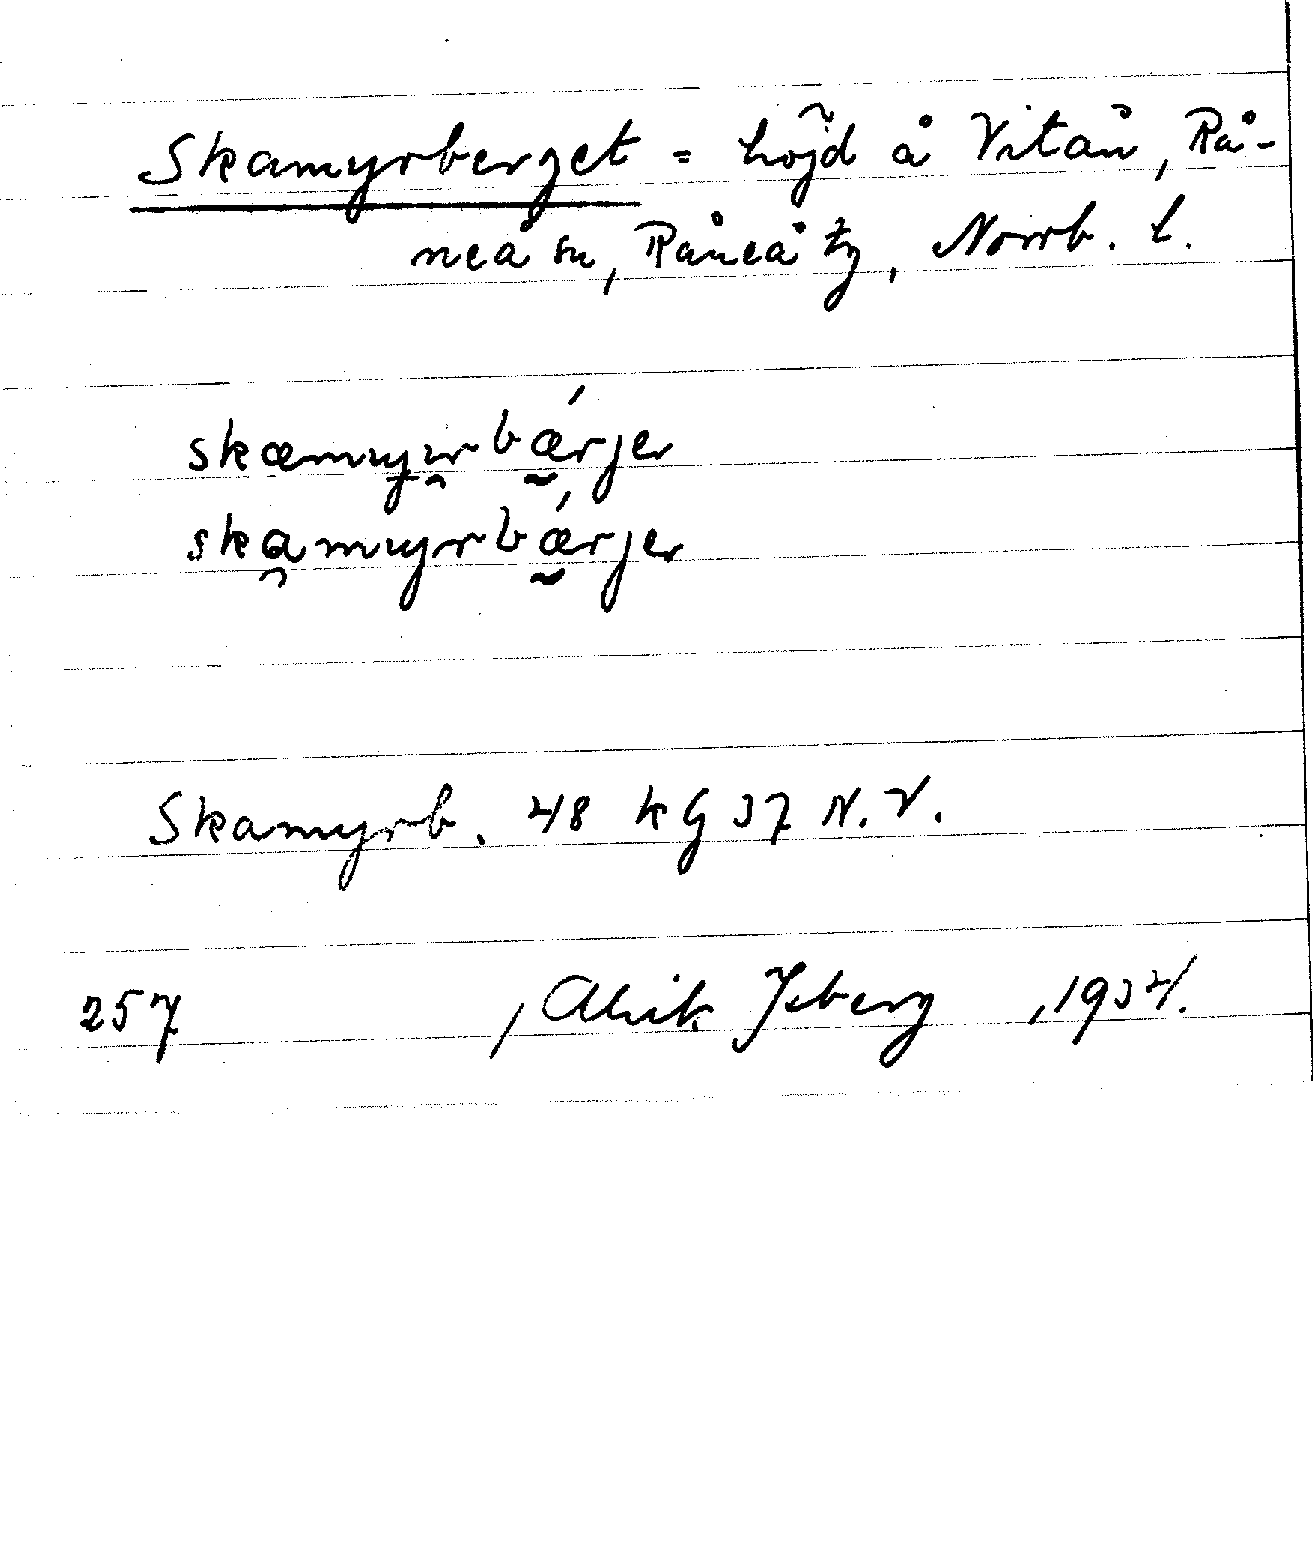 Skamyrberget = höjd å Vitån, Rå-
neå sn, Råneå tg, Norrb. l.
skæmyrbǽrjer
skamyrbǽrjer
Skamyrb. 48 kg 37 N.V.
257 , Alrik Isberg , 1934.